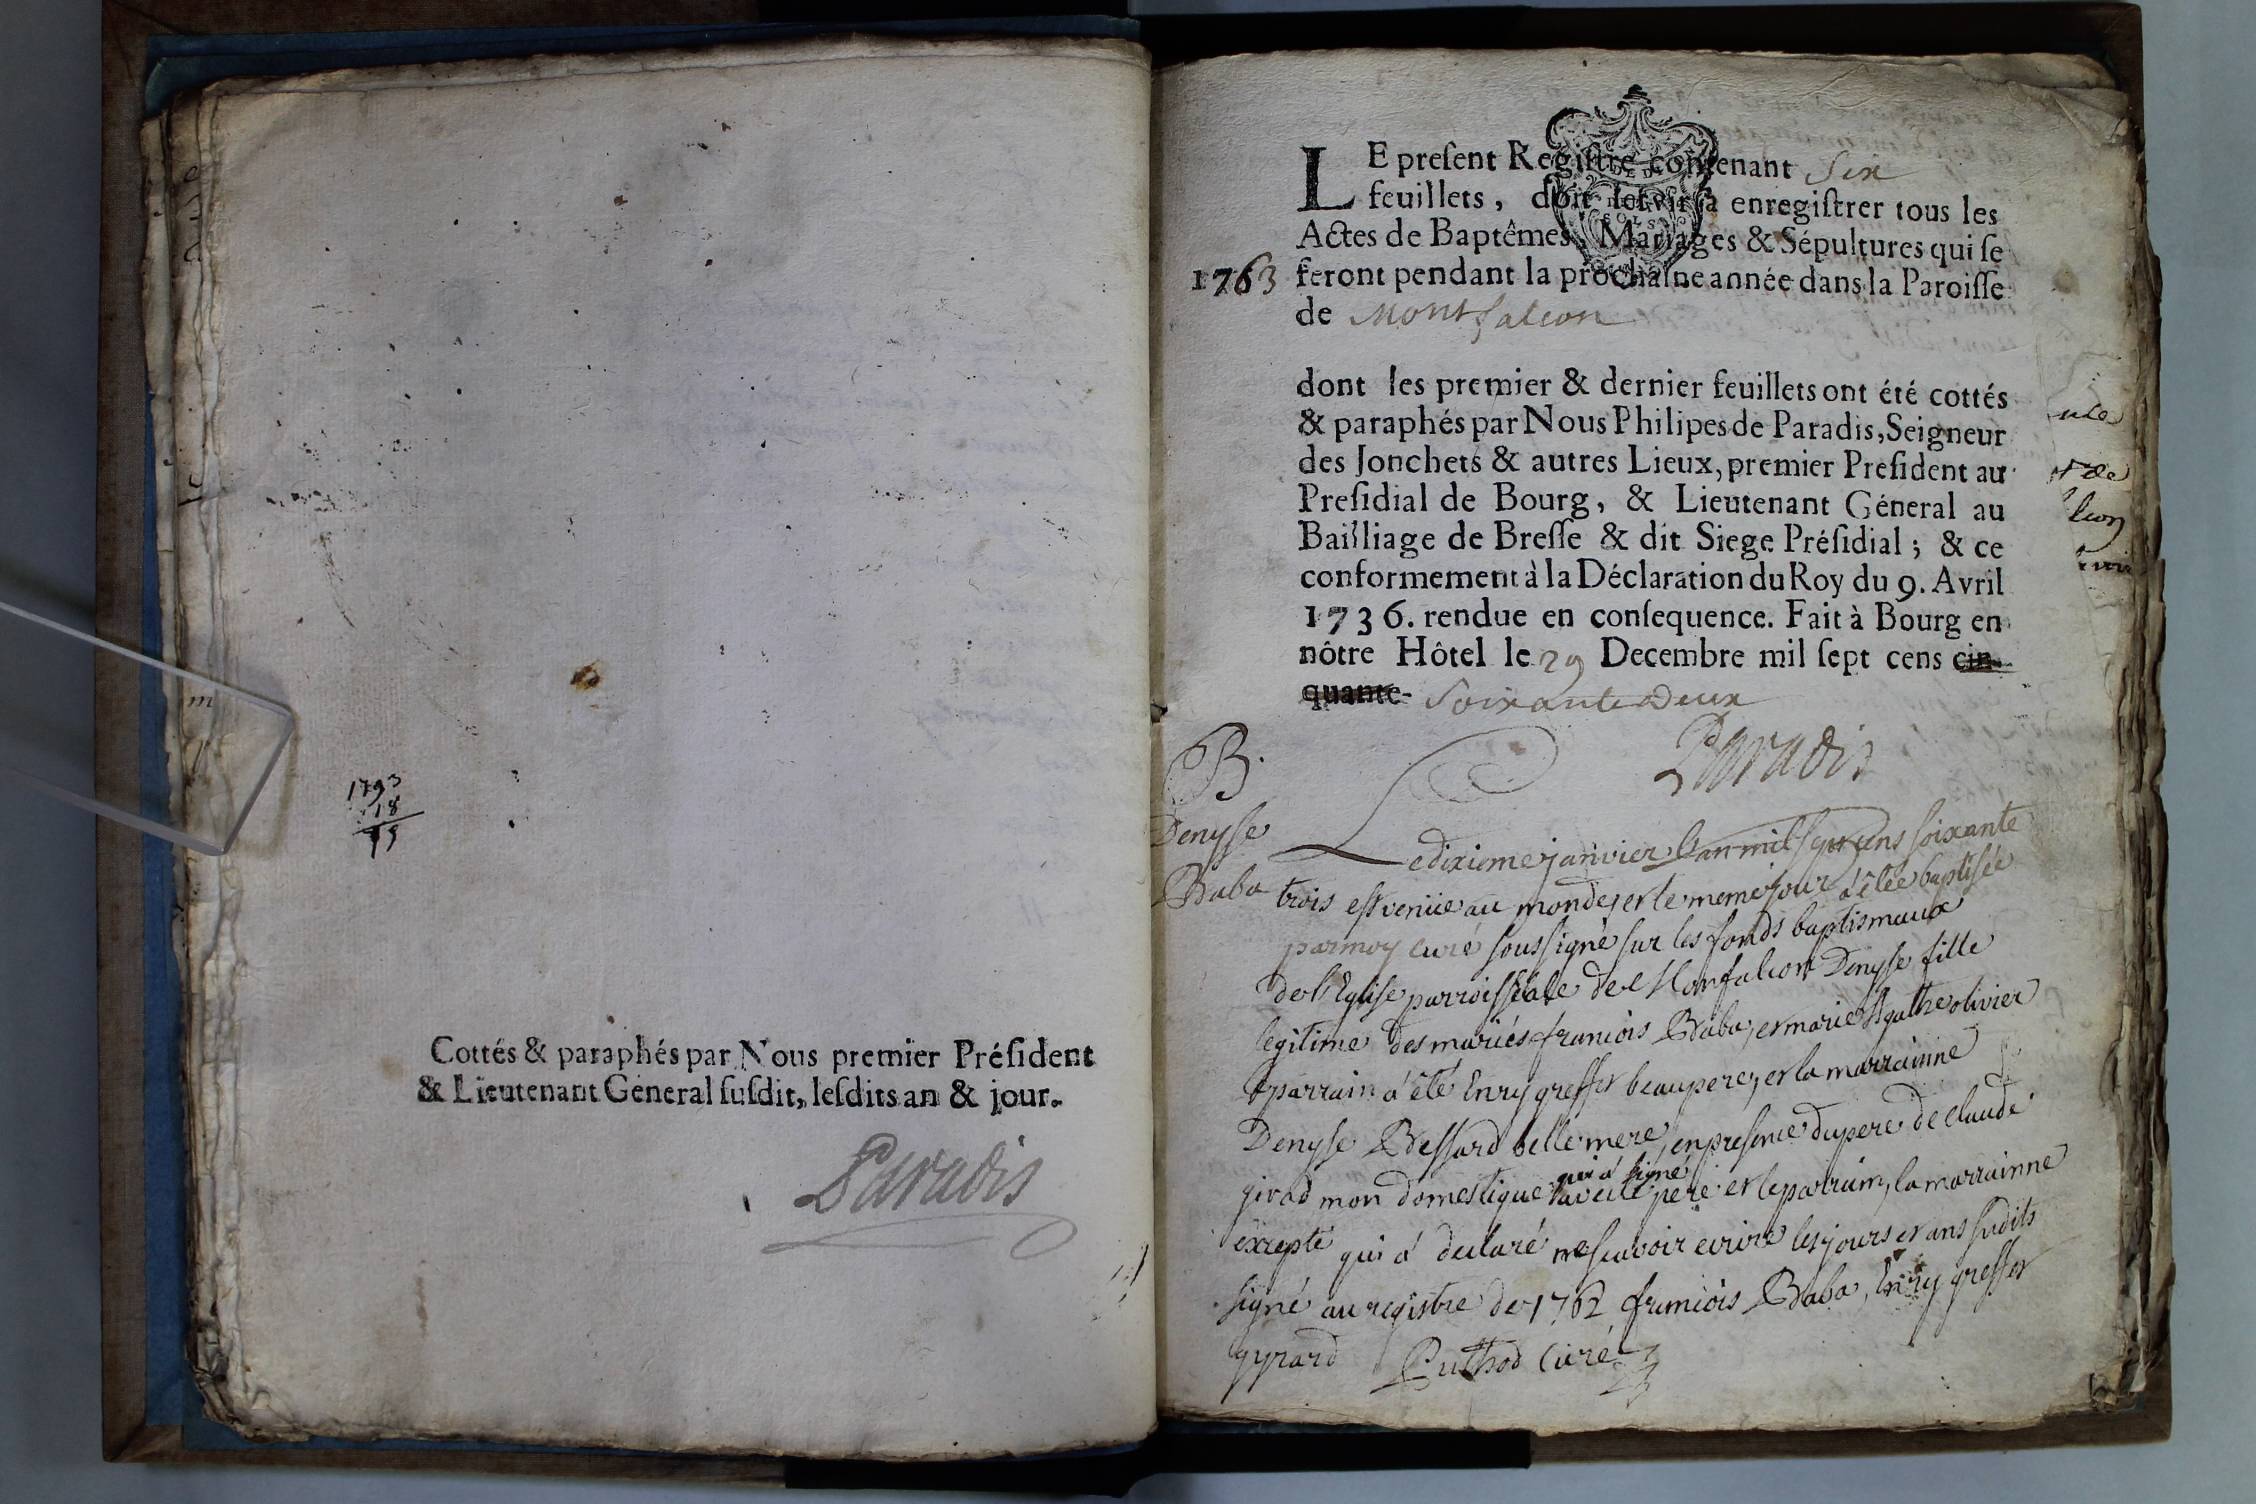 1793
18
Cottés & paraphés par Nous premier Préſident
& Lieutenant Géneral ſuſdit, leſdits an & jour.
Paradis
LE preſent Regiſtre contenant Six
feuillets, doit ſervir à enregiſtrer tous les
Actes de Baptêmes, Mariages & Sépultures qui ſe
1763 feront pendant la prochaine année dans la Paroiſſe
de Montfalcon
dont les premier & dernier feuillets ont été cottés
& paraphés par Nous Philipes de Paradis, Seigneur
des Jonchets & autres Lieux, premier Preſident au
Preſidial de Bourg, & Lieutenant Géneral au
Bailliage de Breſſe & dit Siege Préſidial ; & ce
conformement à la Déclaration du Roy du 9. Avril
1736. rendue en conſequence. Fait à Bourg en
nôtre Hôtel le 29 Decembre mil ſept cens cin-
quante- Soixante Deux
Paradis
B.
Denyse
Baba
Le dixieme janvier l'an mil sept cens soixante
trois est venüe au monde, et le meme jour a été baptisée
par moy curé soussigné sur les fonds baptismaux
de l'Eglise parroissiale de Monfalcon Denyse fille
legitime des mariés francois Baba, et marie Agathe olivier
le parrain a été Enry greffet beaupere, et la marrainne
Denyse Bessard belle mere, en presence du pere de claude
girod mon domestique qui a signé avec le pere et le parrain, la marrainne
excepté qui a declaré ne scavoir ecrire les jours et ans sudits
signé au registre de 1762 francois Baba, Enry greffet
gyrard Puthod Curé